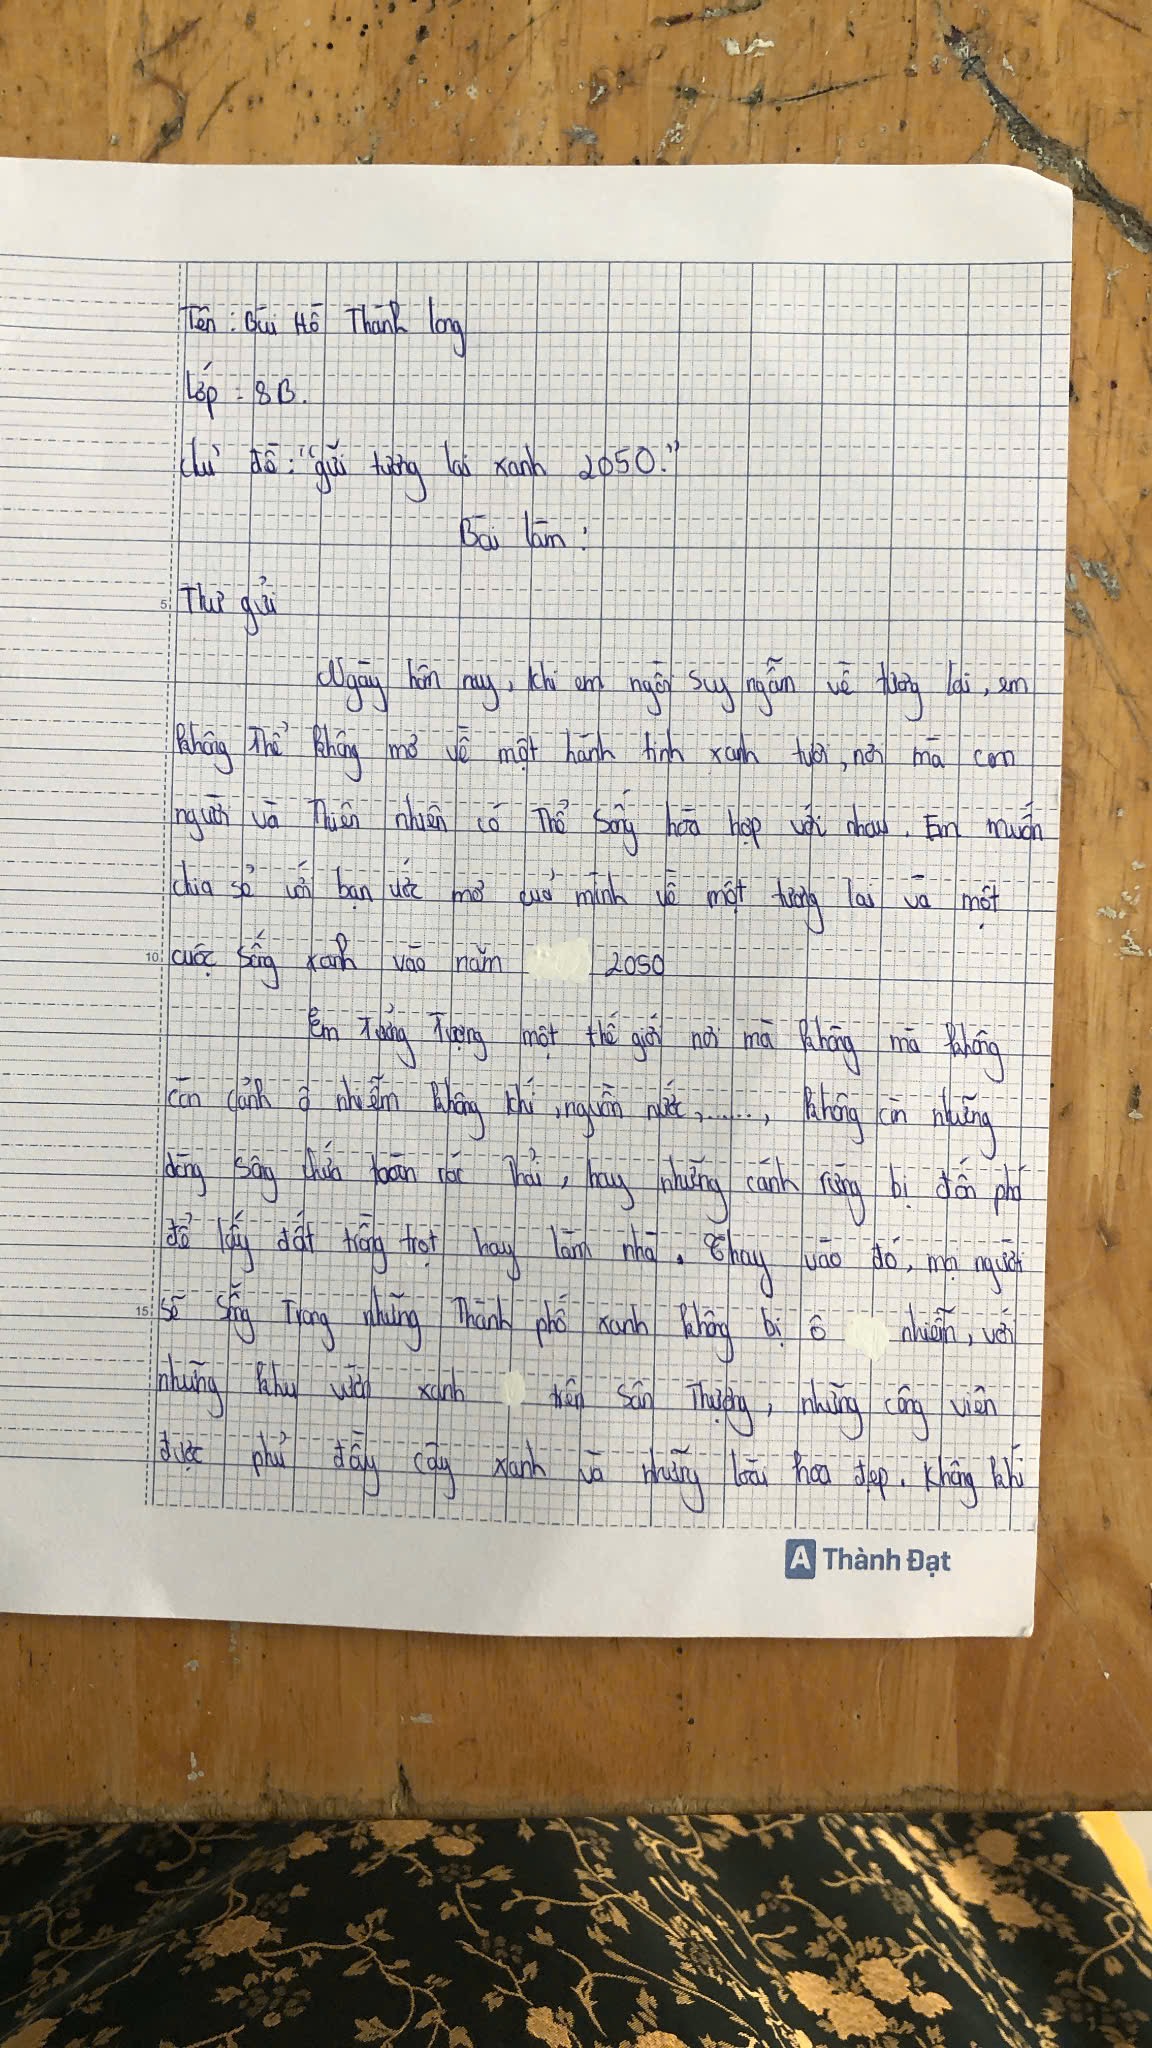 Tên : Bùi Hồ Thành long
Lớp : 8B.
Chủ đề : "gửi tương lai xanh 2050."
Bài làm :
5 Thư gửi
Ngày hôn nay, khi em ngồi suy ngẫm về tương lai, em
không thể không mơ về một hành tinh xanh tươi, nơi mà con
người và Thiên nhiên có thể sống hòa hợp với nhau. Em muốn
chia sẻ với bạn ước mơ của mình về một tương lai và một
10 cuộc sống xanh vào năm 2050
Em tưởng tượng một thế giới nơi mà không mà không
còn cảnh ô nhiễm không khí, nguồn nước, ......, không còn những
dòng sông chứa toàn rác thải, hay những cánh rừng bị đốn phá
để lấy đất trồng trọt hay làm nhà. Thay vào đó, mọi người
15 sẽ sống trong những Thành phố xanh không bị ô nhiễm, với
những khu vườn xanh trên sân thượng, những công viên
được phủ đầy cây xanh và những loài hoa đẹp. Không khí
A Thành Đạt